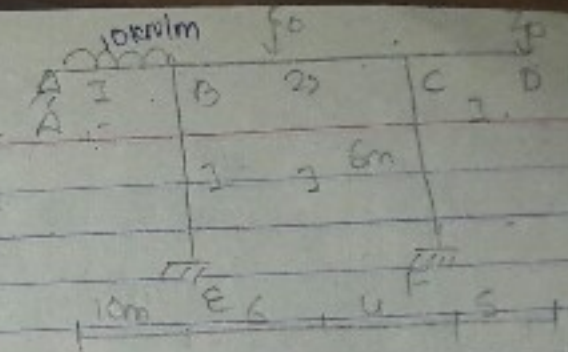 10kN/m
A I B 2I C I D
I I 6m
E F
10m 6 4 5